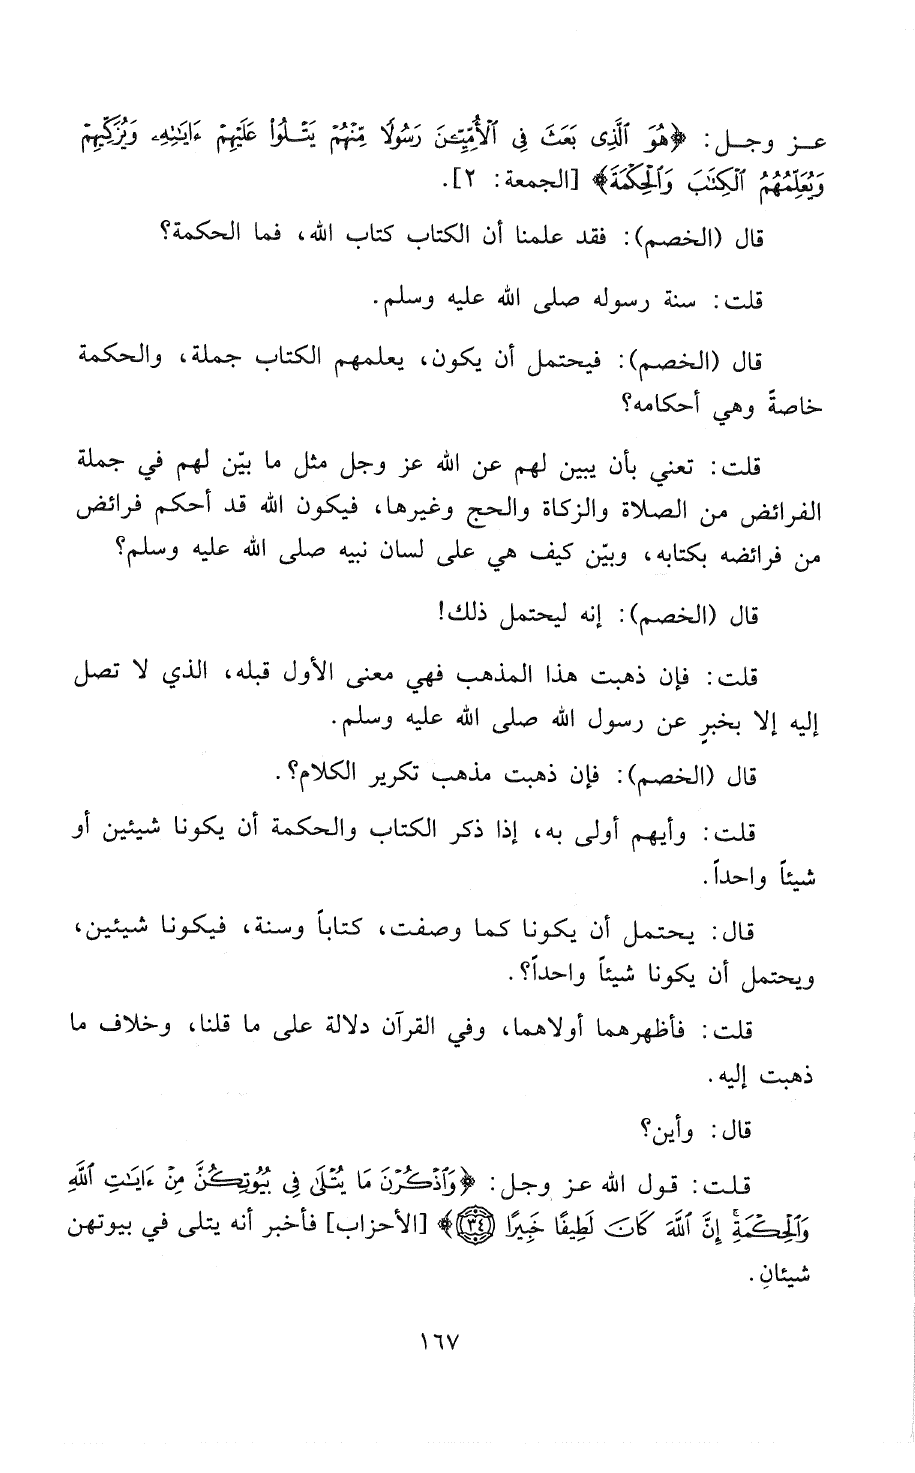 عـز وجـل: ﴿هُوَ ٱلَّذِى بَعَثَ فِى ٱلْأُمِّيِّـۧنَ رَسُولًا مِّنْهُمْ يَتْـلُوا۟ عَلَيْهِمْ ءَايَـٰتِهِۦ وَيُزَكِّيهِمْ
وَيُعَلِّمُهُمُ ٱلْكِتَـٰبَ وَٱلْحِكْمَةَ﴾ [الجمعة: ٢].
قال (الخصم): فقد علمنا أن الكتاب كتاب الله، فما الحكمة؟
قلت: سنة رسوله صلى الله عليه وسلم.
قال (الخصم): فيحتمل أن يكون، يعلمهم الكتاب جملة، والحكمة
خاصةً وهي أحكامه؟
قلت: تعني بأن يبين لهم عن الله عز وجل مثل ما بيّن لهم في جملة
الفرائض من الصلاة والزكاة والحج وغيرها، فيكون الله قد أحكم فرائض
من فرائضه بكتابه، وبيّن كيف هي على لسان نبيه صلى الله عليه وسلم؟
قال (الخصم): إنه ليحتمل ذلك!
قلت: فإن ذهبت هذا المذهب فهي معنى الأول قبله، الذي لا تصل
إليه إلا بخبرٍ عن رسول الله صلى الله عليه وسلم.
قال (الخصم): فإن ذهبت مذهب تكرير الكلام؟.
قلت: وأيهم أولى به، إذا ذكر الكتاب والحكمة أن يكونا شيئين أو
شيئاً واحداً.
قال: يحتمل أن يكونا كما وصفت، كتاباً وسنة، فيكونا شيئين،
ويحتمل أن يكونا شيئاً واحداً؟.
قلت: فأظهرهما أولاهما، وفي القرآن دلالة على ما قلنا، وخلاف ما
ذهبت إليه.
قال: وأين؟
قلت: قول الله عز وجل: ﴿وَٱذْكُرْنَ مَا يُتْلَىٰ فِى بُيُوتِكُنَّ مِنْ ءَايَـٰتِ ٱللَّهِ
وَٱلْحِكْمَةِ ۚ إِنَّ ٱللَّهَ كَانَ لَطِيفًا خَبِيرًا ٣٤﴾ [الأحزاب] فأخبر أنه يتلى في بيوتهن
شيئانِ.
١٦٧